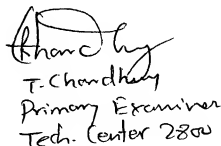 T. Chaudhry
Primary Examiner
Tech. Center 2800